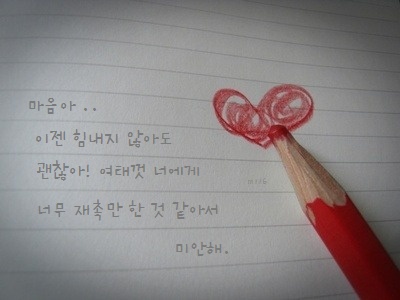 마음아 . .
이젠 힘내지 않아도
괜찮아! 여태껏 너에게
너무 재촉만 한 것 같아서
미안해.